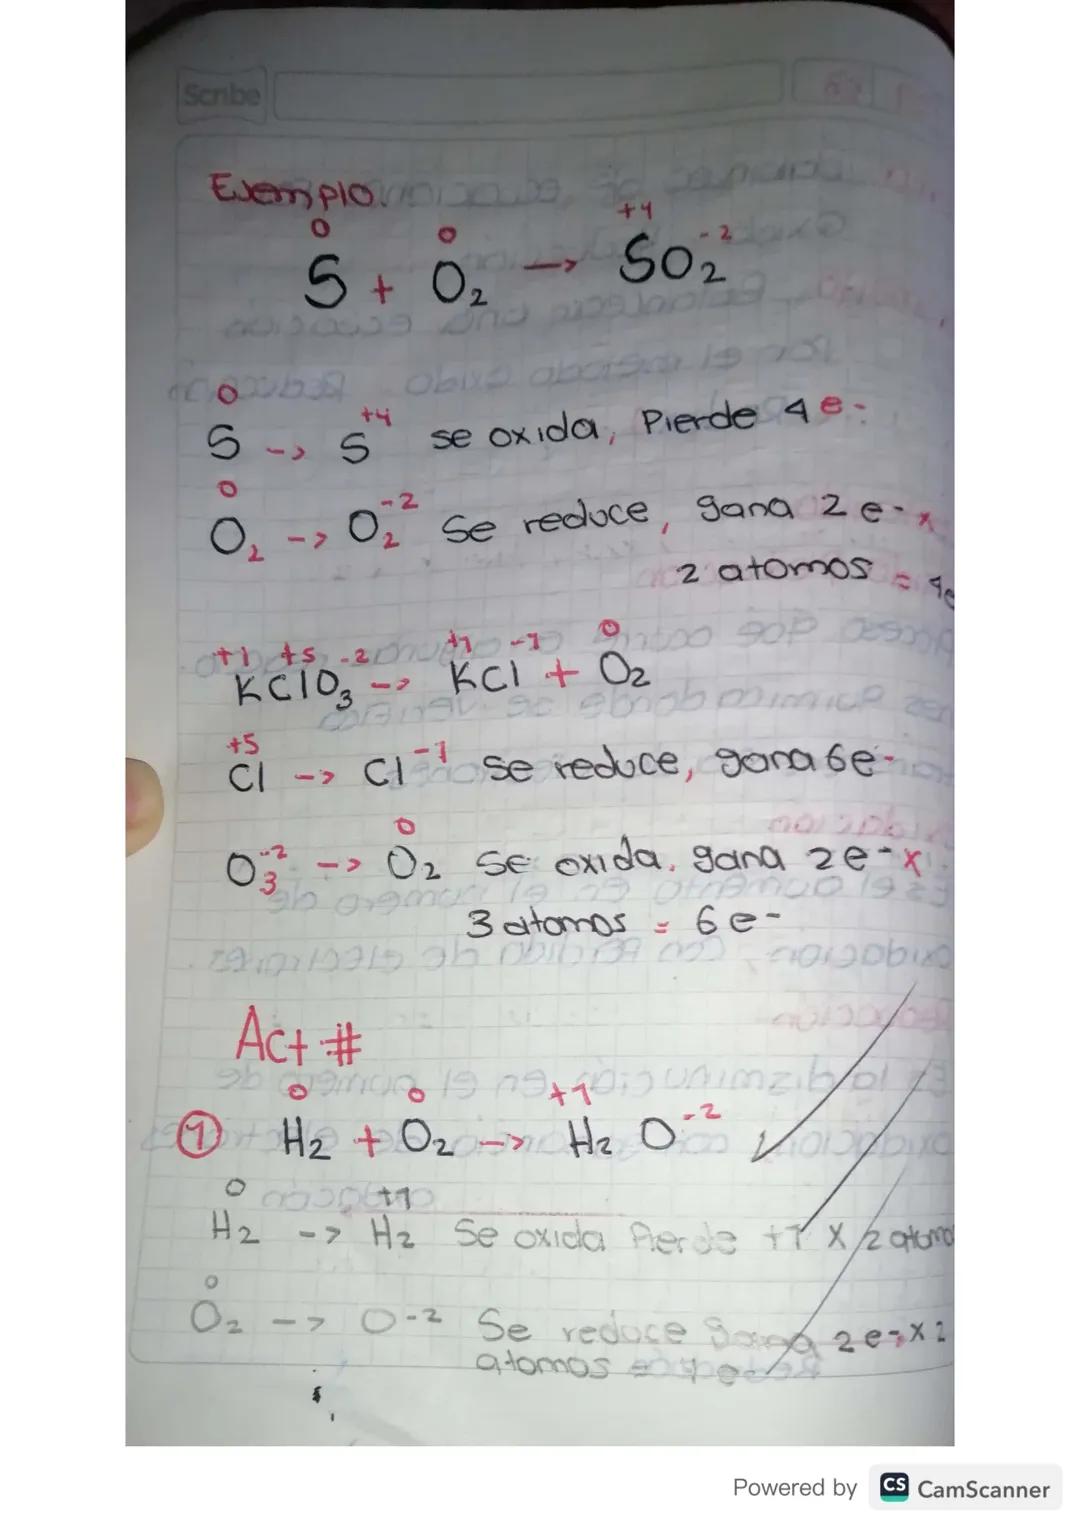 Scribe
Ejemplo.
0 0 +4 -2
S + O2 -> SO2
0 +4
S -> S se oxida, Pierde 4 e-
0 -2
O2 -> O2 Se reduce, gana 2 e- x
2 atomos = 4e
+1 +5 -2 +1 -1 0
KClO3 -> KCl + O2
+5 -1
Cl -> Cl se reduce, gana 6e-
-2 0
O3 -> O2 se oxida. gana 2e- x
3 atomos = 6e-
Act #
0 0 +1 -2
1 H2 + O2 -> H2O
0 +1
H2 -> H2 Se oxida Pierde +1 x 2 atomo
0
O2 -> O-2 Se reduce gana 2e- x 2
atomos = 4e-
Powered by CS CamScanner